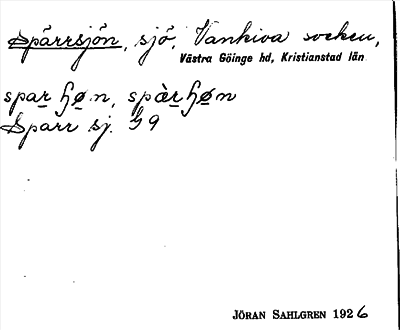 Spärrsjön, sjö, Vankiva socken,
Västra Göinge hd, Kristianstad län
Sparr sj. G 9
JÖRAN SAHLGREN 1926